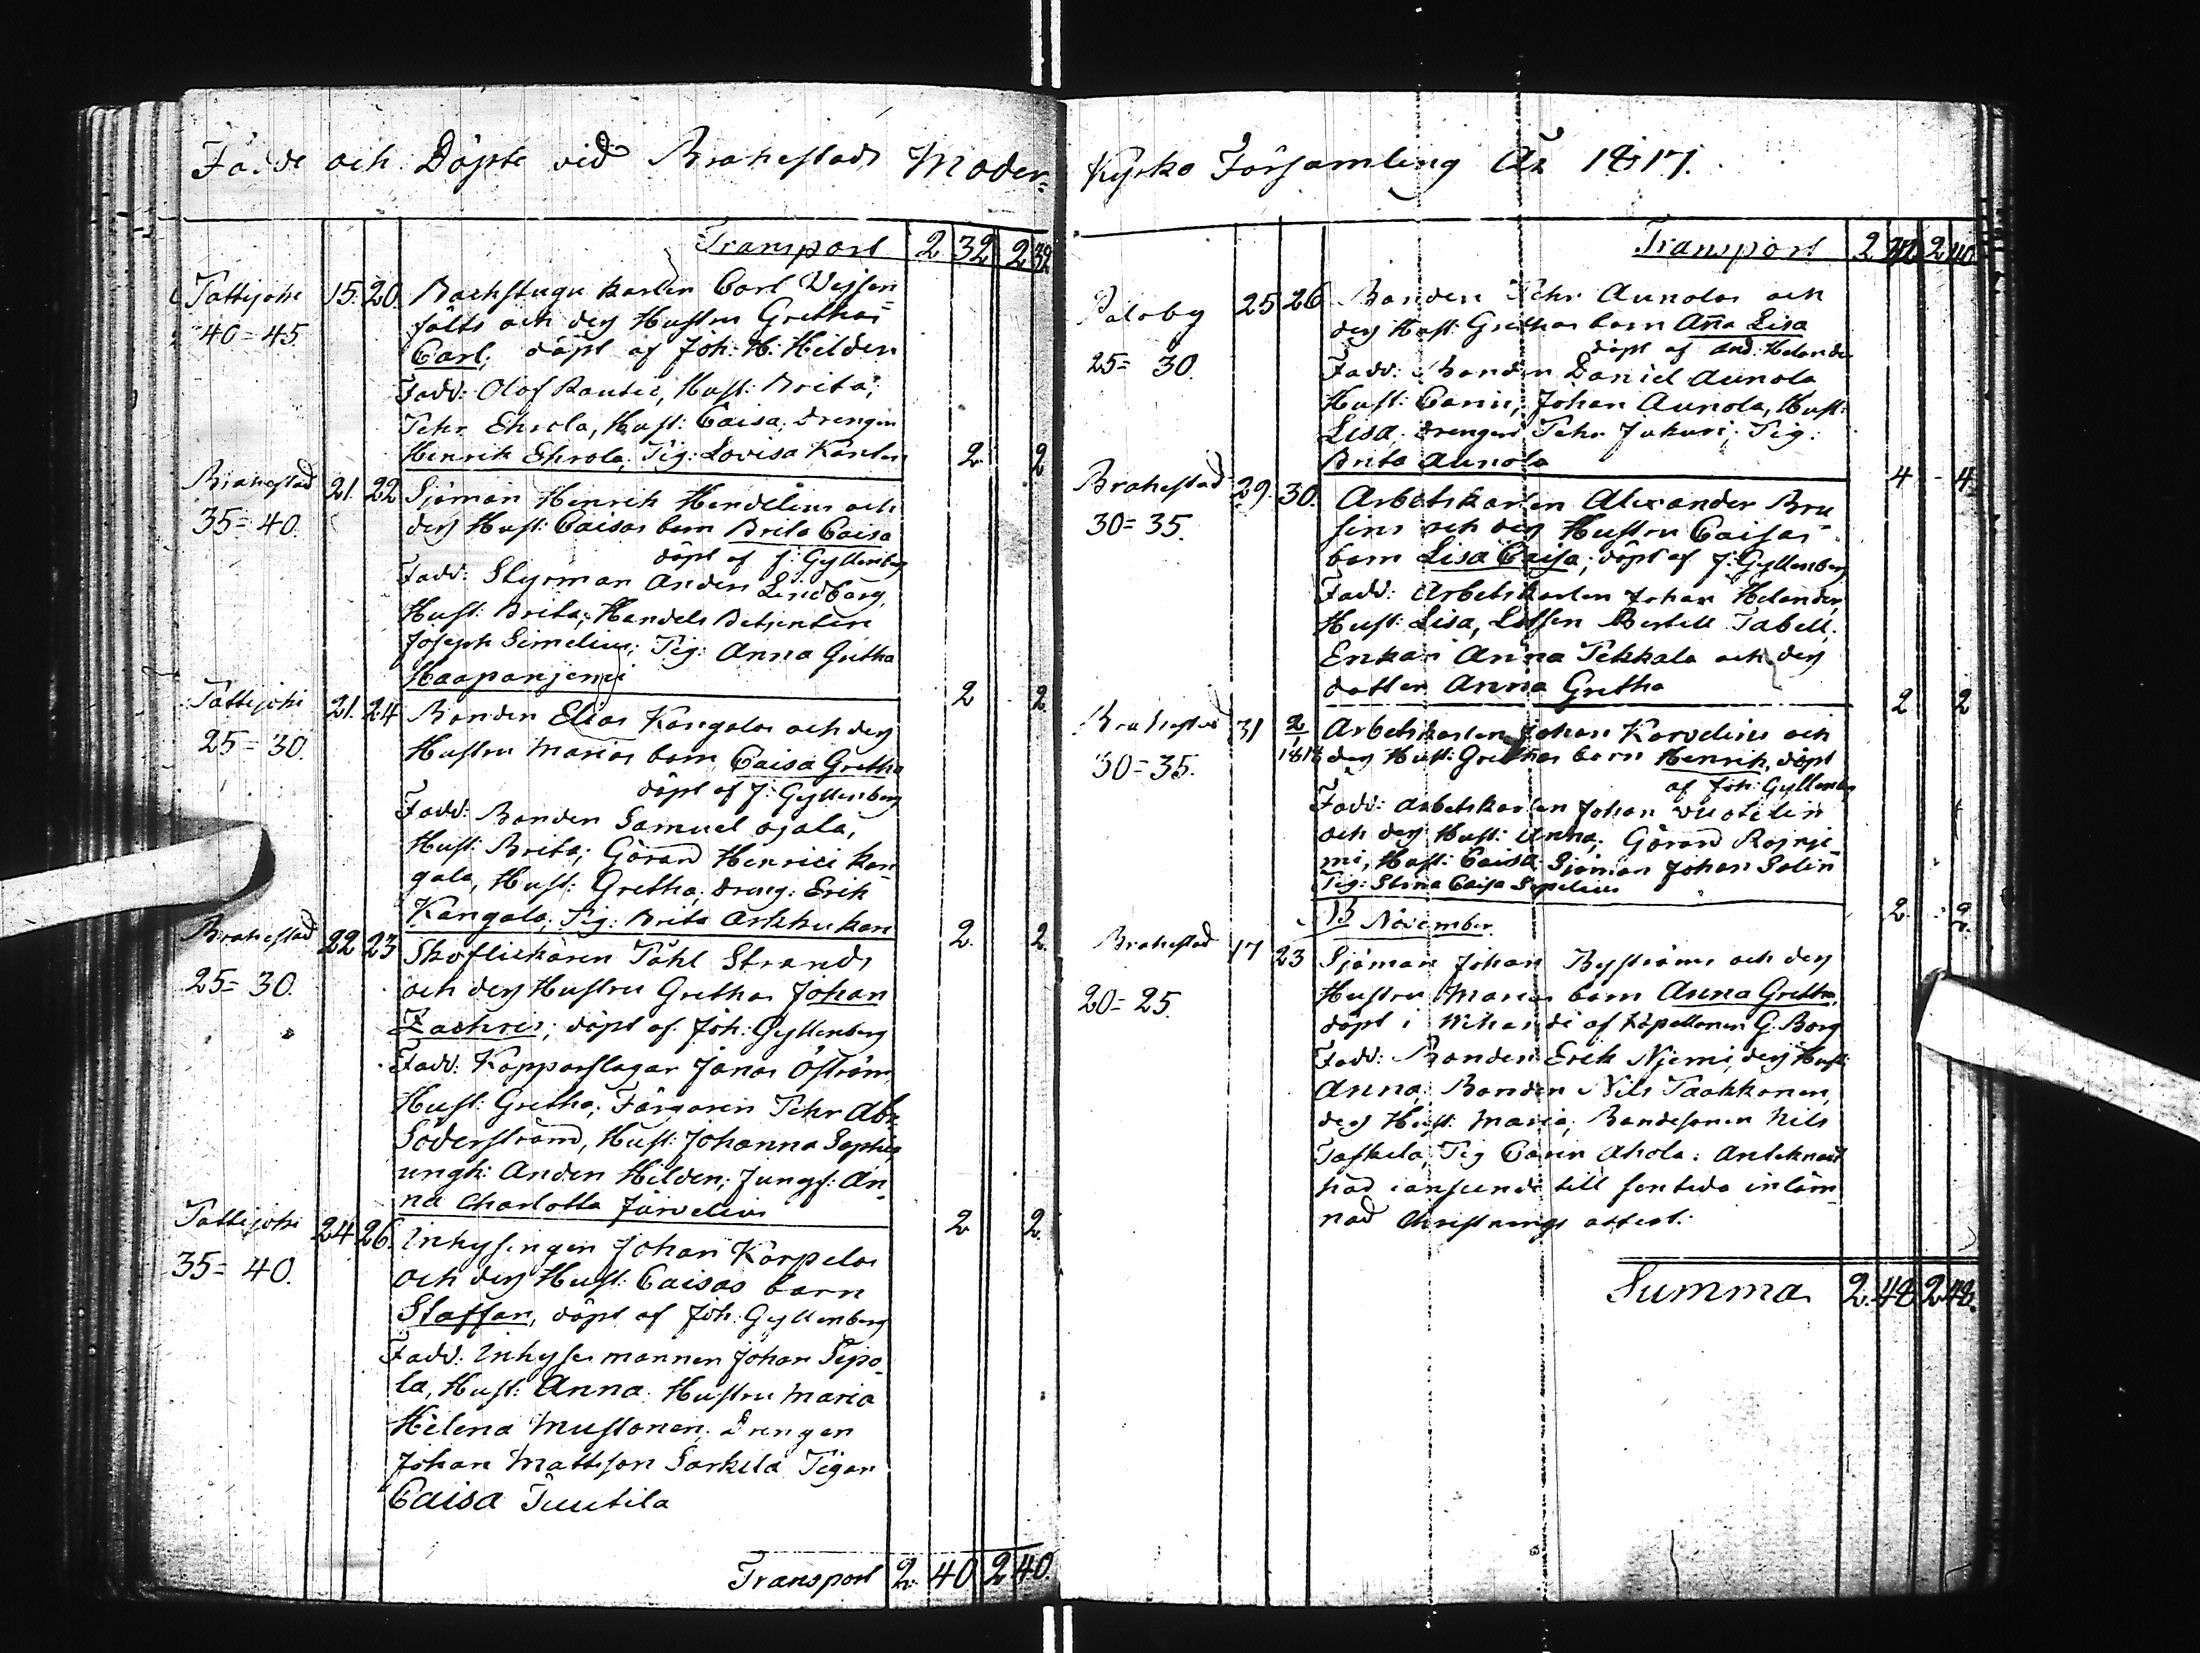 Födde och Döpte vid Brahestads Moder-
Transport 2 32 2 32
Pattijoki 15. 20. Backstugu karlen Carl Vejsen-
40=45. fälts och dess Hustru Grethas
Carl; döpt af Joh: H: Hilden
Fadd: Olof Rautio, Hust: Brita;
Pehr Ehrola, Hust: Caisa; drengen
Henrik Ehrola, Pig: Lovisa Kanten 2 2
Brahestad 21. 22 Sjöman Henrik Hendelins och
35=40. dess Hust: Caisas barn Brita Caisa
döpt af J: Gyllenberg
Fadd: Styrman Anders Lindberg,
Hust: Brita; Handels Betjenten
Joseph Simelius; Pig: Anna Gretha
Haapaniemi 2 2
Pattijoki 21. 24 Bonden Elias Kangalas och dess
25=30. Hustru Marias barn Caisa Gretha
döpt af J: Gyllenberg
Fadd: Bonden Samuel Ojala,
Hust: Brita; Görand Henrici Kan-
gala, Hust: Gretha; dreng: Erik
Kangala, Pig: Brita Arkkukari 2. 2
Brahestad 22 23 Skoflickaren Påhl Strands
25=30. och dess Hustru Grethas Johan
Zachris; döpt af Joh: Gyllenberg
Fadd: Kopparslagar Jonas Öström,
Hust: Gretha; Färgaren Pehr Abr:
Söderström, Hust: Johanna Sophia,
ungk: Anders Hilden; Jungf: An-
na Charlotta Järvelius 2 2
Pattijoki 24 26. Inhysingen Johan Karpelas
35=40. och dess Hust: Caisas barn
Staffan, döpt af Joh: Gyllenberg
Fadd: Inhyses mannen Johan Sipo-
la, Hust: Anna. Hustru Maria
Helena Mustonen; Drengen
Johan Mattsson Sarkela Pigan
Caisa Tuutila
Transport 2. 40 2 40.
Kyrko Församling År 1817.
Transport 2 40 2 40
Paloby 25 26 Bonden Pehr Aunolas och
25=30. dess Hust: Grethas barn Anna Lisa
döpt af And: Helander
Fadd: Bonden Daniel Aunola
Hust: Carin; Johan Aunola, Hust:
Lisa; drengen Pehr Jukuri; Pig:
Brita Aunola 4 4
Brahestad 29. 30. Arbetskarlen Alexander Bru-
30=35. sins och dess Hustru Caisas
barn Lisa Caisa; döpt af J: Gyllenberg
Fadd: Arbetskarlen Johan Helander,
Hust: Lisa, Lotsen Bertell Tabell;
Enkan Anna Pekkala och dess
dotter Anna Gretha 2 2
Brahestad 31 2/1 Arbetskarlen Johan Karvelins och
30=35. 1818 dess Hust: Grethas barn Henrik, döpt
af Joh: Gyllenberg
Fadd: Arbetskarlen Johan Vuotilin
och dess Hust: Anna; Görand
Hust: Caisa Sjöman Johan Solin
Pig: Stina Caisa 2. 2.
November.
Brahestad 17 23 Sjöman Johan Byströms och dess
20=25. Hustru Marias barn Anna Gretha,
döpt i Vihandi af Kapellanen G. Borg
Fadd: Bonden Erik Niemi, dess Hust:
Anna; Bonden Nils Paakkonen,
dess Hust: Maria; Bondesonen Nils
Paskela, Pig Carin Ahola: Antecknad
i anseende till sent inläm-
nad Christnings attest.
Summa 2. 48 2 48.